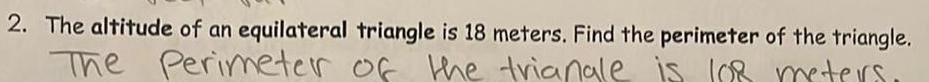 2. The altitude of an equilateral triangle is 18 meters. Find the perimeter of the triangle.
The Perimeter of the triangle is 108 meters.